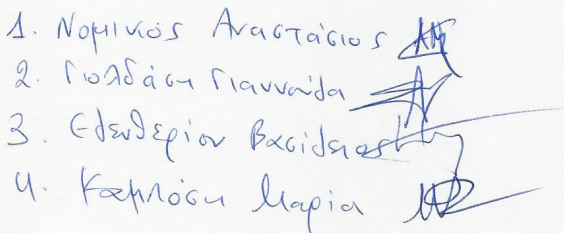 1. Νομικός Αναστάσιος
2. Γιολδάση Γιαννούλα
3. Ελευθερίου Βασίλειος
4. Καμπόση Μαρία